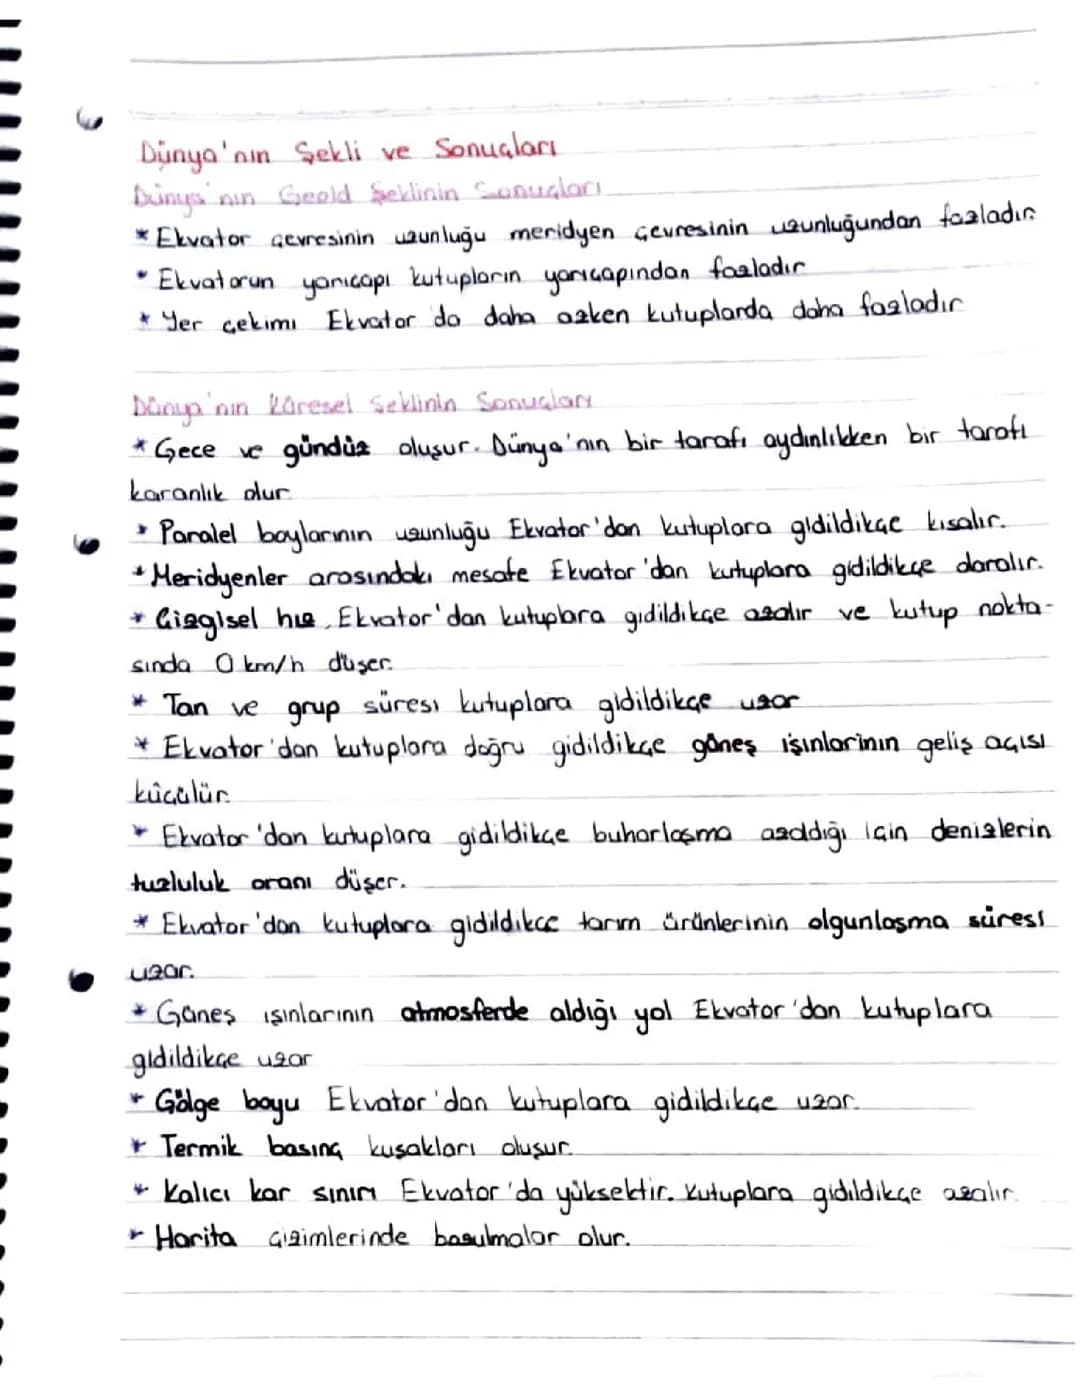 Dünya'nın Şekli ve Sonuçları
Dünya'nın Geoid Şeklinin Sonuçları
* Ekvator çevresinin uzunluğu meridyen çevresinin uzunluğundan fazladır
* Ekvatorun yarıçapı kutupların yarıçapından fazladır
* Yer çekimi Ekvator da daha azken kutuplarda daha fazladır
Dünya'nın Küresel Şeklinin Sonuçları
* Gece ve gündüz oluşur. Dünya'nın bir tarafı aydınlıkken bir tarafı
karanlık olur
* Paralel boylarının uzunluğu Ekvator'dan kutuplara gidildikçe kısalır.
* Meridyenler arasındaki mesafe Ekvator'dan kutuplara gidildikçe daralır.
* Çizgisel hız, Ekvator'dan kutuplara gidildikçe azalır ve kutup nokta-
sında 0 km/h düşer.
* Tan ve grup süresi kutuplara gidildikçe uzar
* Ekvator'dan kutuplara doğru gidildikçe güneş ışınlarının geliş açısı
küçülür.
* Ekvator'dan kutuplara gidildikçe buharlaşma azaldığı için denizlerin
tuzluluk oranı düşer.
* Ekvator'dan kutuplara gidildikçe tarım ürünlerinin olgunlaşma süresi
uzar.
* Güneş ışınlarının atmosferde aldığı yol Ekvator'dan kutuplara
gidildikçe uzar
* Gölge boyu Ekvator'dan kutuplara gidildikçe uzar.
* Termik basınç kuşakları oluşur.
* Kalıcı kar sınırı Ekvator'da yüksektir. Kutuplara gidildikçe azalır.
* Harita çizimlerinde bozulmalar olur.